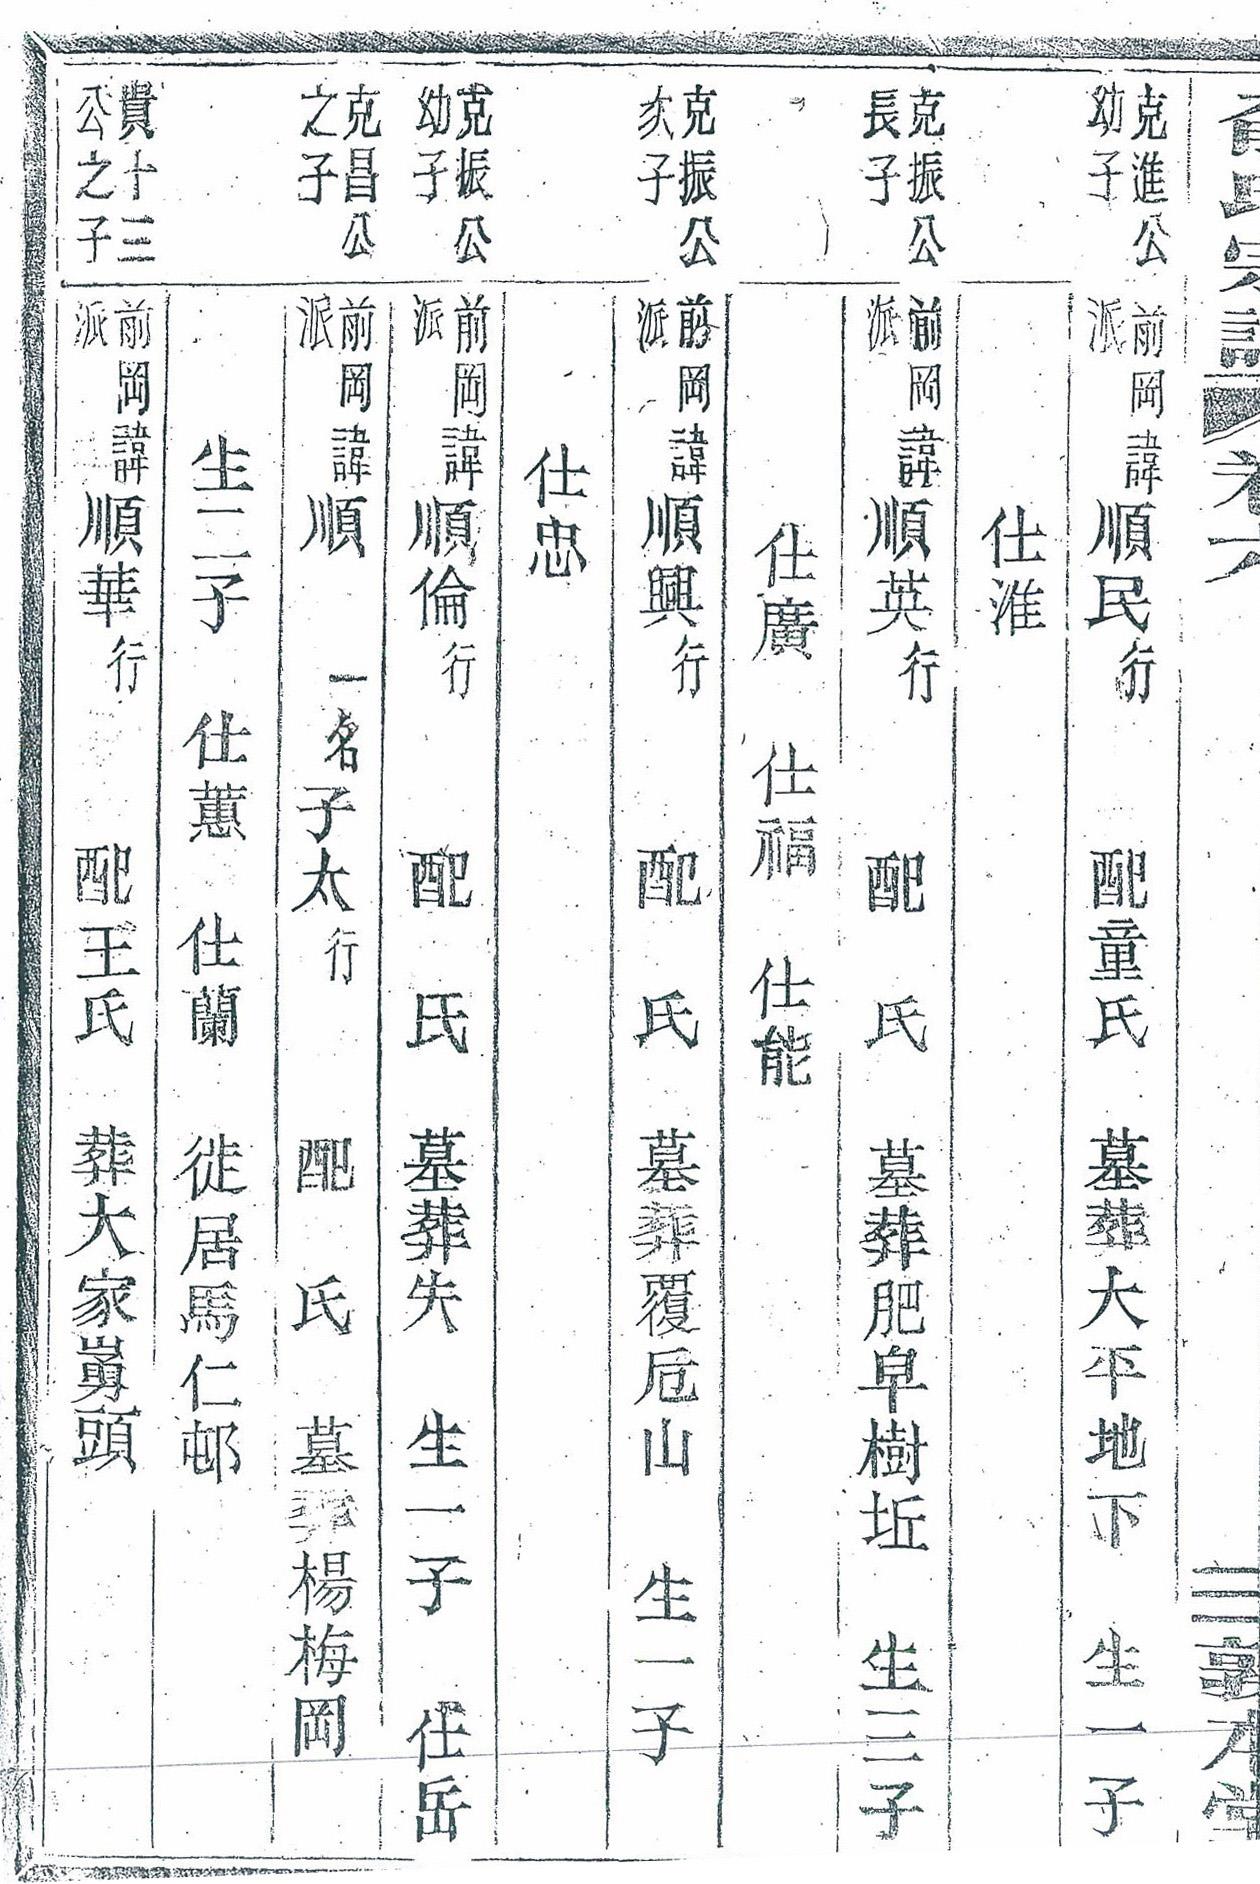 氏宗譜 卷六 三 敦本堂
克進公幼子 前岡派諱順民行 配童氏 墓葬大平地下 生一子
仕淮
克振公長子 前岡派諱順英行 配 氏 墓葬肥皁樹坵 生三子
仕廣 仕福 仕能
克振公次子 前岡派諱順興行 配 氏 墓葬覆卮山 生一子
仕忠
克振公幼子 前岡派諱順倫行 配 氏 墓葬失 生一子 仕岳
克昌公之子 前岡派諱順 一名子太行 配 氏 墓葬楊梅岡
生二子 仕蕙 仕蘭 徙居馬仁邨
貴十三公之子 前岡派諱順華行 配王氏 葬大家頭